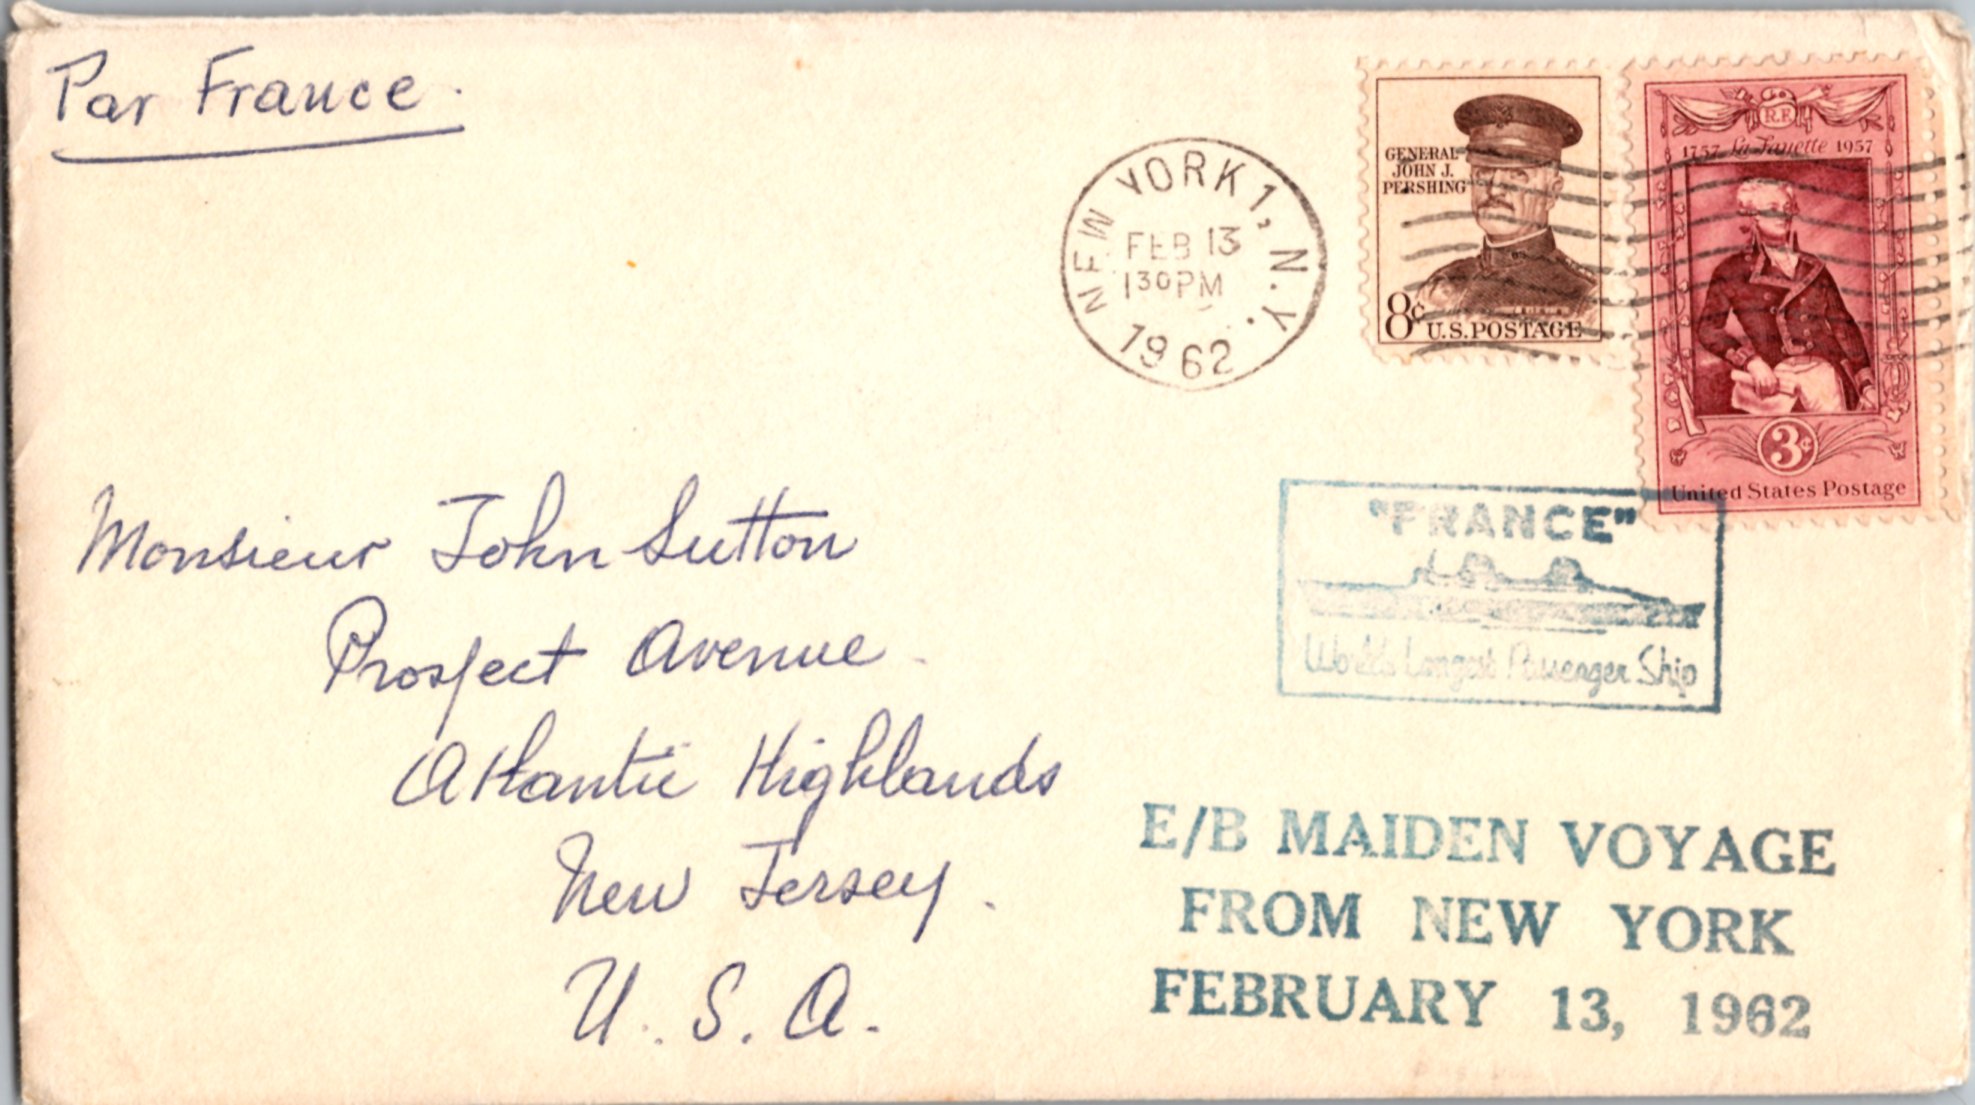 Par France.
GENERAL
JOHN J.
PERSHING
8¢ U.S. POSTAGE
R.F.
1757 La Fayette 1957
3¢
United States Postage
NEW YORK 1, N.Y.
FEB 13
1 30 PM
1962
"FRANCE"
World's Longest Passenger Ship
Monsieur John Sutton
Prospect Avenue
Atlantic Highlands
New Jersey.
U.S.A.
E/B MAIDEN VOYAGE
FROM NEW YORK
FEBRUARY 13, 1962